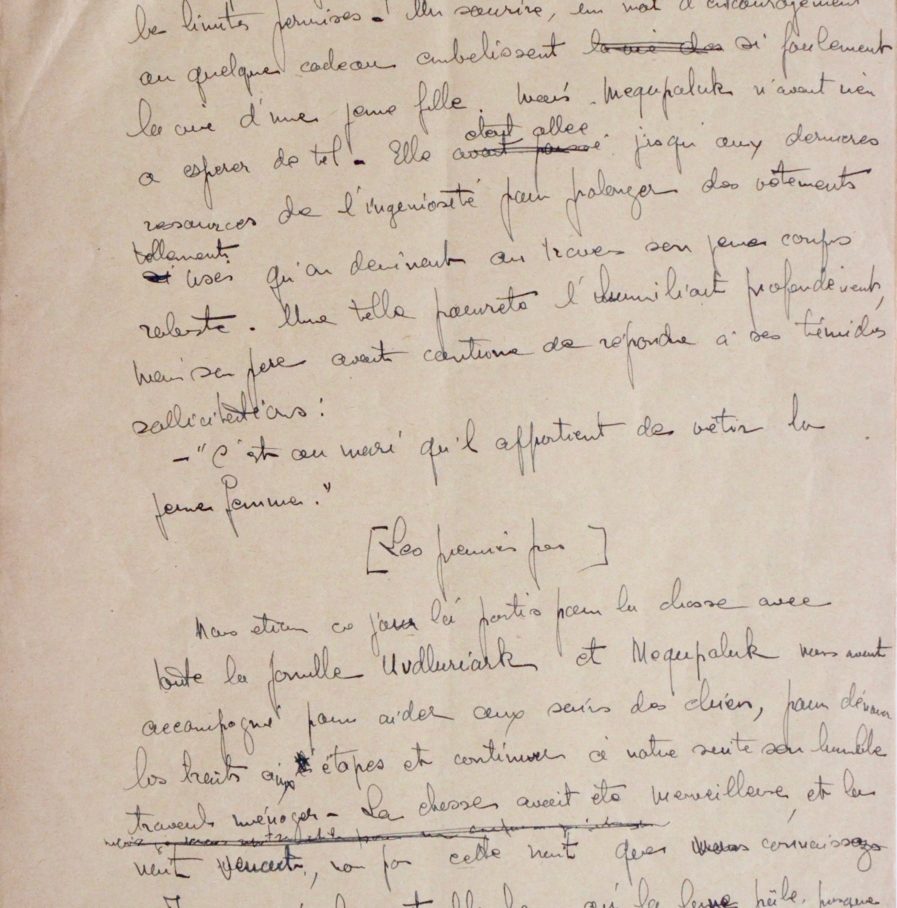 les limites permises. Un sourire, un mot d'encouragement
ou quelque cadeau embelissent la vie des si facilement
la vie d'une jeune fille. Mais Mequpaluk n'avait rien
a esperer de tel. Elle avait
etait allee
jusqu'aux dernieres
ressources de l'ingeniosité pour prolonger des vêtements
tellement
si uses qu'on devinait au travers son jeune corps
robuste. Une telle pauvreté l'humiliait profondement,
mais son pere avait coutume de répondre à ses timides
sollicitations :
- "C'est au mari qu'il appartient de vetir la
jeune femme."
[Les premiers pas]
Nous etions ce jour là partis pour la chasse avec
toute la famille Uvdluriark et Mequpaluk nous avait
accompagné pour aider aux soins des chiens, pour dénouer
les traits aux étapes et continuer à notre suite son humble
travail ménager. La chasse avait été merveilleuse, et la
nuit venait, non pas cette nuit que vous connaissez